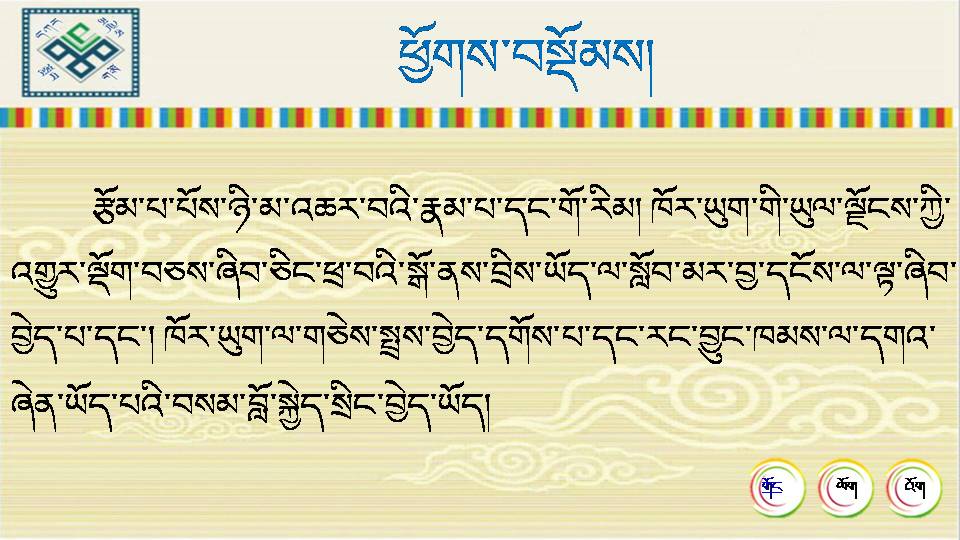 ཕྱོགས་བསྡོམས།
རྩོམ་པ་པོས་ཉི་མ་འཆར་བའི་རྣམ་པ་དང་གོ་རིམ། ཁོར་ཡུག་གི་ཡུལ་ལྗོངས་ཀྱི་
འགྱུར་ལྡོག་བཅས་ཞིབ་ཅིང་ཕྲ་བའི་སྒོ་ནས་བྲིས་ཡོད་ལ་སློབ་མར་བྱ་དངོས་ལ་ལྟ་ཞིབ་
བྱེད་པ་དང་། ཁོར་ཡུག་ལ་གཅེས་སྤྲས་བྱེད་དགོས་པ་དང་རང་བྱུང་ཁམས་ལ་དགའ་
ཞེན་ཡོད་པའི་བསམ་བློ་སྐྱེད་སྲིང་བྱེད་ཡོད།
གོང་ ལོག འོག